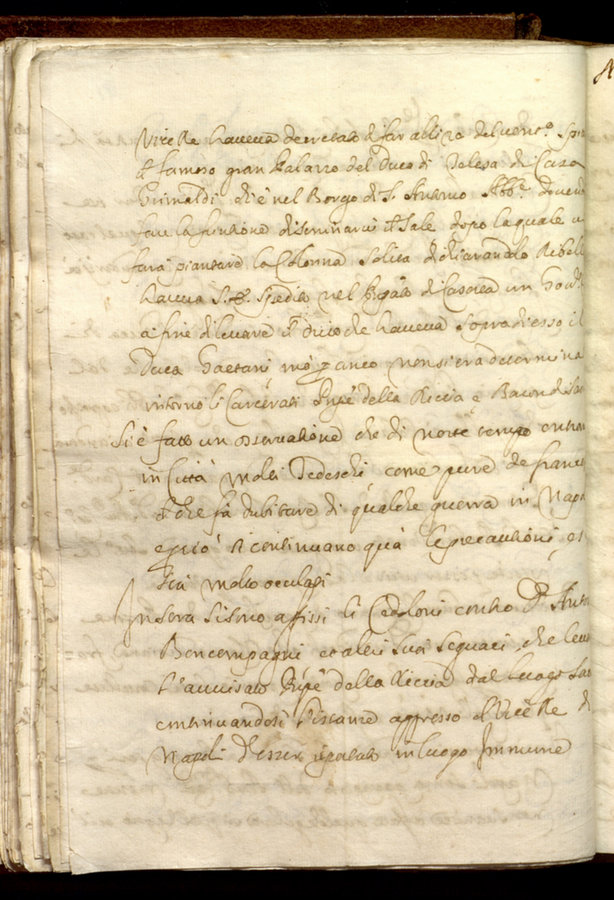 Vice Re haveva decretato di far alli 20 del vent.º
il famoso gran Palazzo del Duca di Telesa di Casa
Grimaldi, che è nel Borgo di S. Antonio Abb.e dovend
fare la funtione di seminarvi il Sale dopo la quale vi
farà piantare la Colonna solita dichiarandolo Ribell
haveva S. E. spedito nel Regato di Caserta un
a fine di levare il dritto che haveva sopra di esso il
Duca Gaetani mà p anco non si era determina
intorno li Carcerati Pnpe della Riccia e Baron di
Si è fatto un osservatione che di notte tempo entran
in Città molti Tedeschi come pure de franc
il che fà dubitare di qualche guerra in Nap
e perciò si continuano quà le precautioni, e s
stà molto oculati
In sera si sono affissi li Cedoloni contro D. Anto
Boncompagni et altri suoi seguaci, che leva
l'avvisato Pnpe della Riccia dal luogo Sa
continuandosi l'istanze appresso il Vice Re di
Napoli d'esser riportato in luogo Immune
A